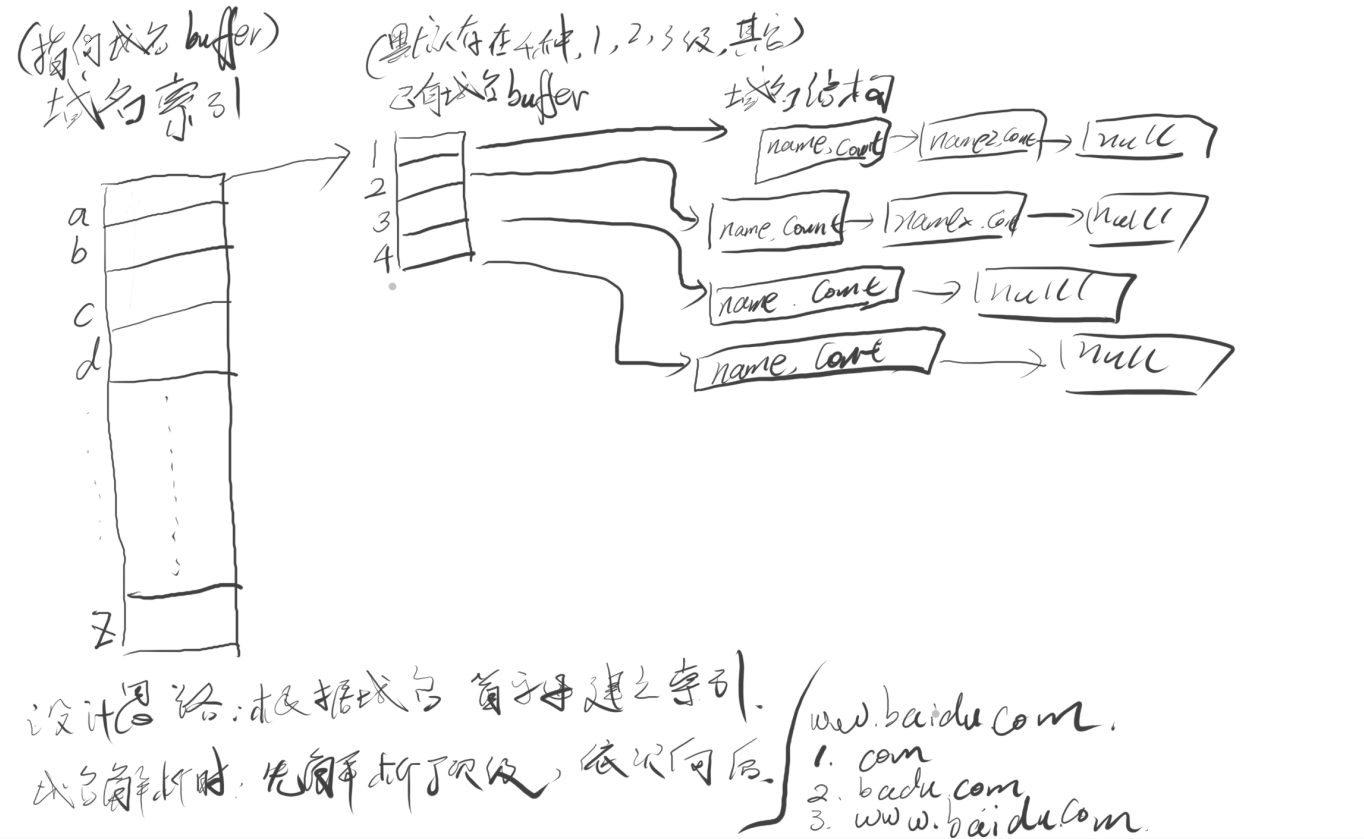 (指向域名buffer)
域名索引
(默认存在4种,1,2,3级,其它)
已有域名buffer
域名结构
a
b
c
d
z
1
2
3
4
name,count
name2,count
null
name,count
namex.count
null
name.count
null
name,count
null
设计思路:根据域名首字母建立索引.
域名解析时:先解析顶级,依次向后.
www.baidu.com.
1. com
2. badu.com
3. www.baidu.com.